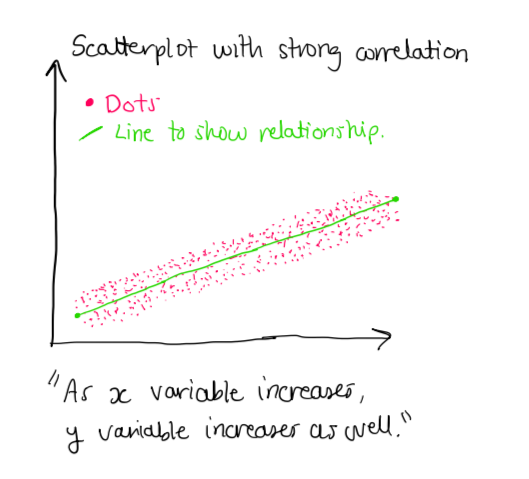 Scatterplot with strong correlation
Dots
Line to show relationship.
"As x variable increases,
y variable increases as well."